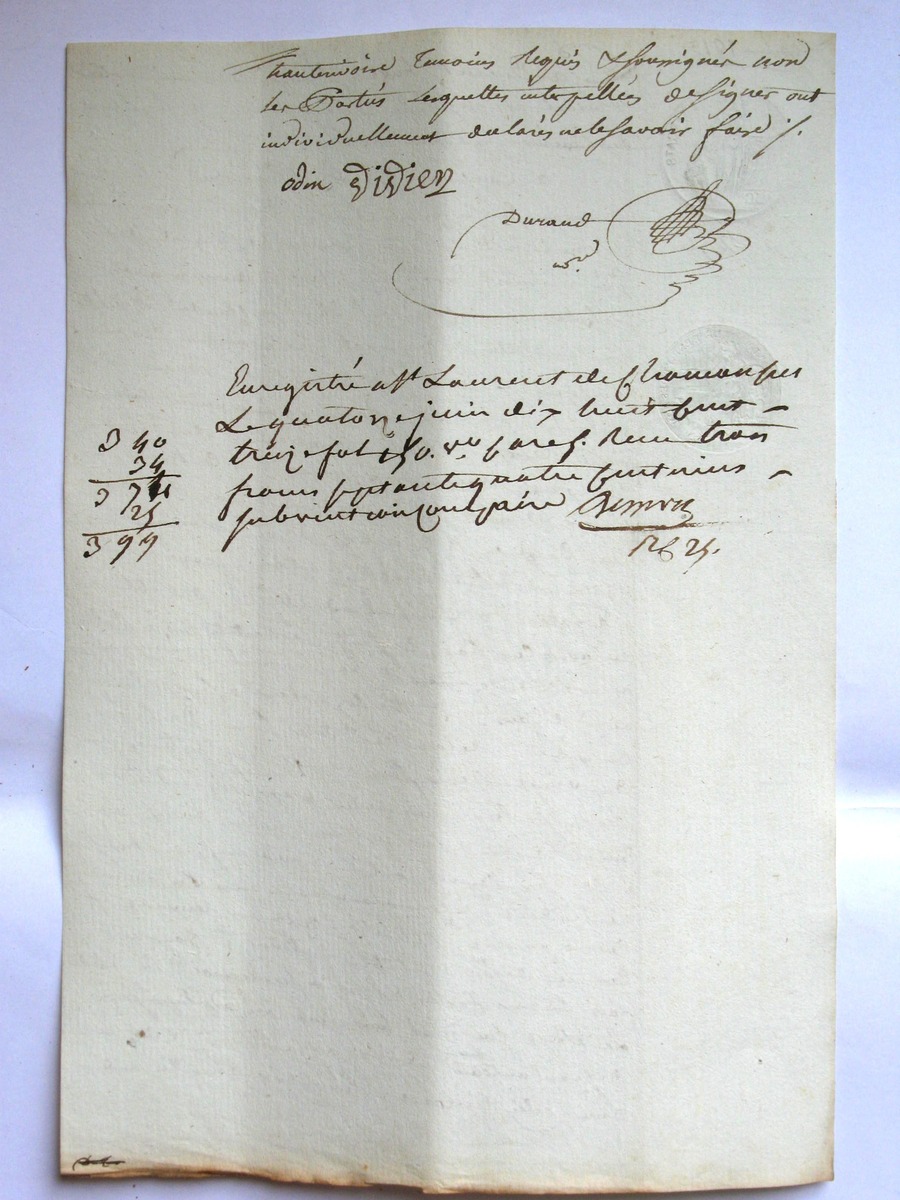 hauterivoire temoins requis & soussignés non
les Parties lesquelles interpellées de signer ont
individuellement declarés ne le savoir faire ./.
odin didier
Durand
nre
Enregistré a St Laurent de Chamousset
Le quatorze juin dix huit cent
treize fol 150. vo Case f. Recu trois
francs septante quatre centimes
subvention comprise
R 25.
3 40
34
3 74
25
3 99